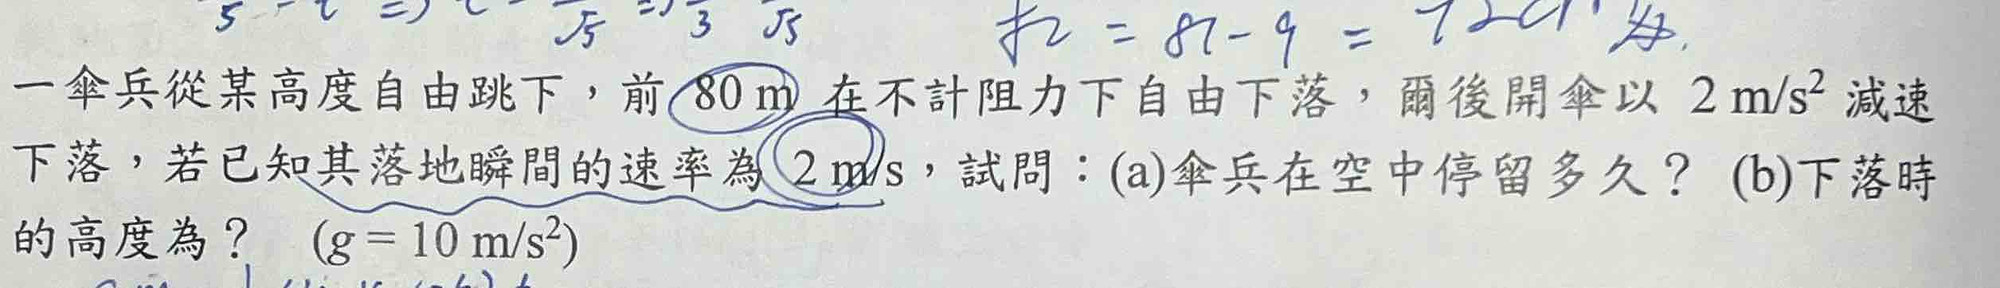 = 81 - 9 = 72
一傘兵從某高度自由跳下，前 80 m 在不計阻力下自由下落，爾後開傘以 2 m/s² 減速
下落，若已知其落地瞬間的速率為 2 m/s，試問：(a)傘兵在空中停留多久？ (b)下落時
的高度為？ (g = 10 m/s²)